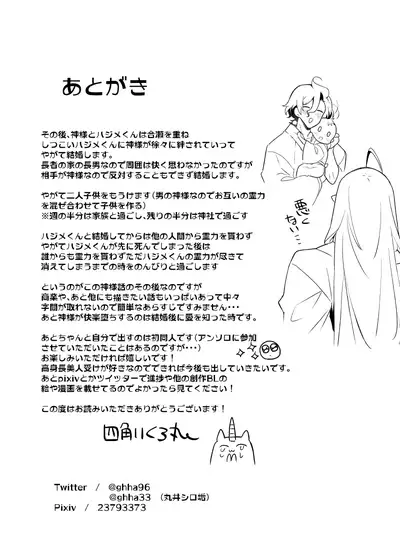 あとがき
その後、神様とハジメくんは合瀬を重ね
しつこいハジメくんに神様が徐々に絆されていって
やがて結婚します。
長者の家の長男なので周囲は快く思わなかったのですが
相手が神様なので反対することもできず結婚します。
やがて二人子供をもうけます(男の神様なのでお互いの霊力
を混ぜ合わせて子供を作る)
※週の半分は家族と過ごし、残りの半分は神社で過ごす
ハジメくんと結婚してからは他の人間から霊力を貰わず
やがてハジメくんが先に死んでしまった後は
誰からも霊力を貰わずただハジメくんの霊力が尽きて
消えてしまうまでの時をのんびりと過ごします
というのがこの神様話のその後なのですが
商業や、あと他にも描きたい話もいっぱいあって中々
字間が取れないので簡単なあらすじですみません…
あと神様が快楽堕ちするのは結婚後に愛を知った時です。
あとちゃんと自分で出すのは初同人です(アンソロに参加
させていただいたことはあるのですが・・・)
お楽しみいただければ嬉しいです!
高身長美人受けが好きなのでできれば今後も出していきたいです。
あとpixivとかツイッターで進捗や他の創作BLの
絵や漫画を載せてるのでよかったら見てください!
この度はお読みいただきありがとうございます!
四角いくろ丸
Twitter / @ghha96
@ghha33 (丸井シロ垢)
Pixiv / 23793373